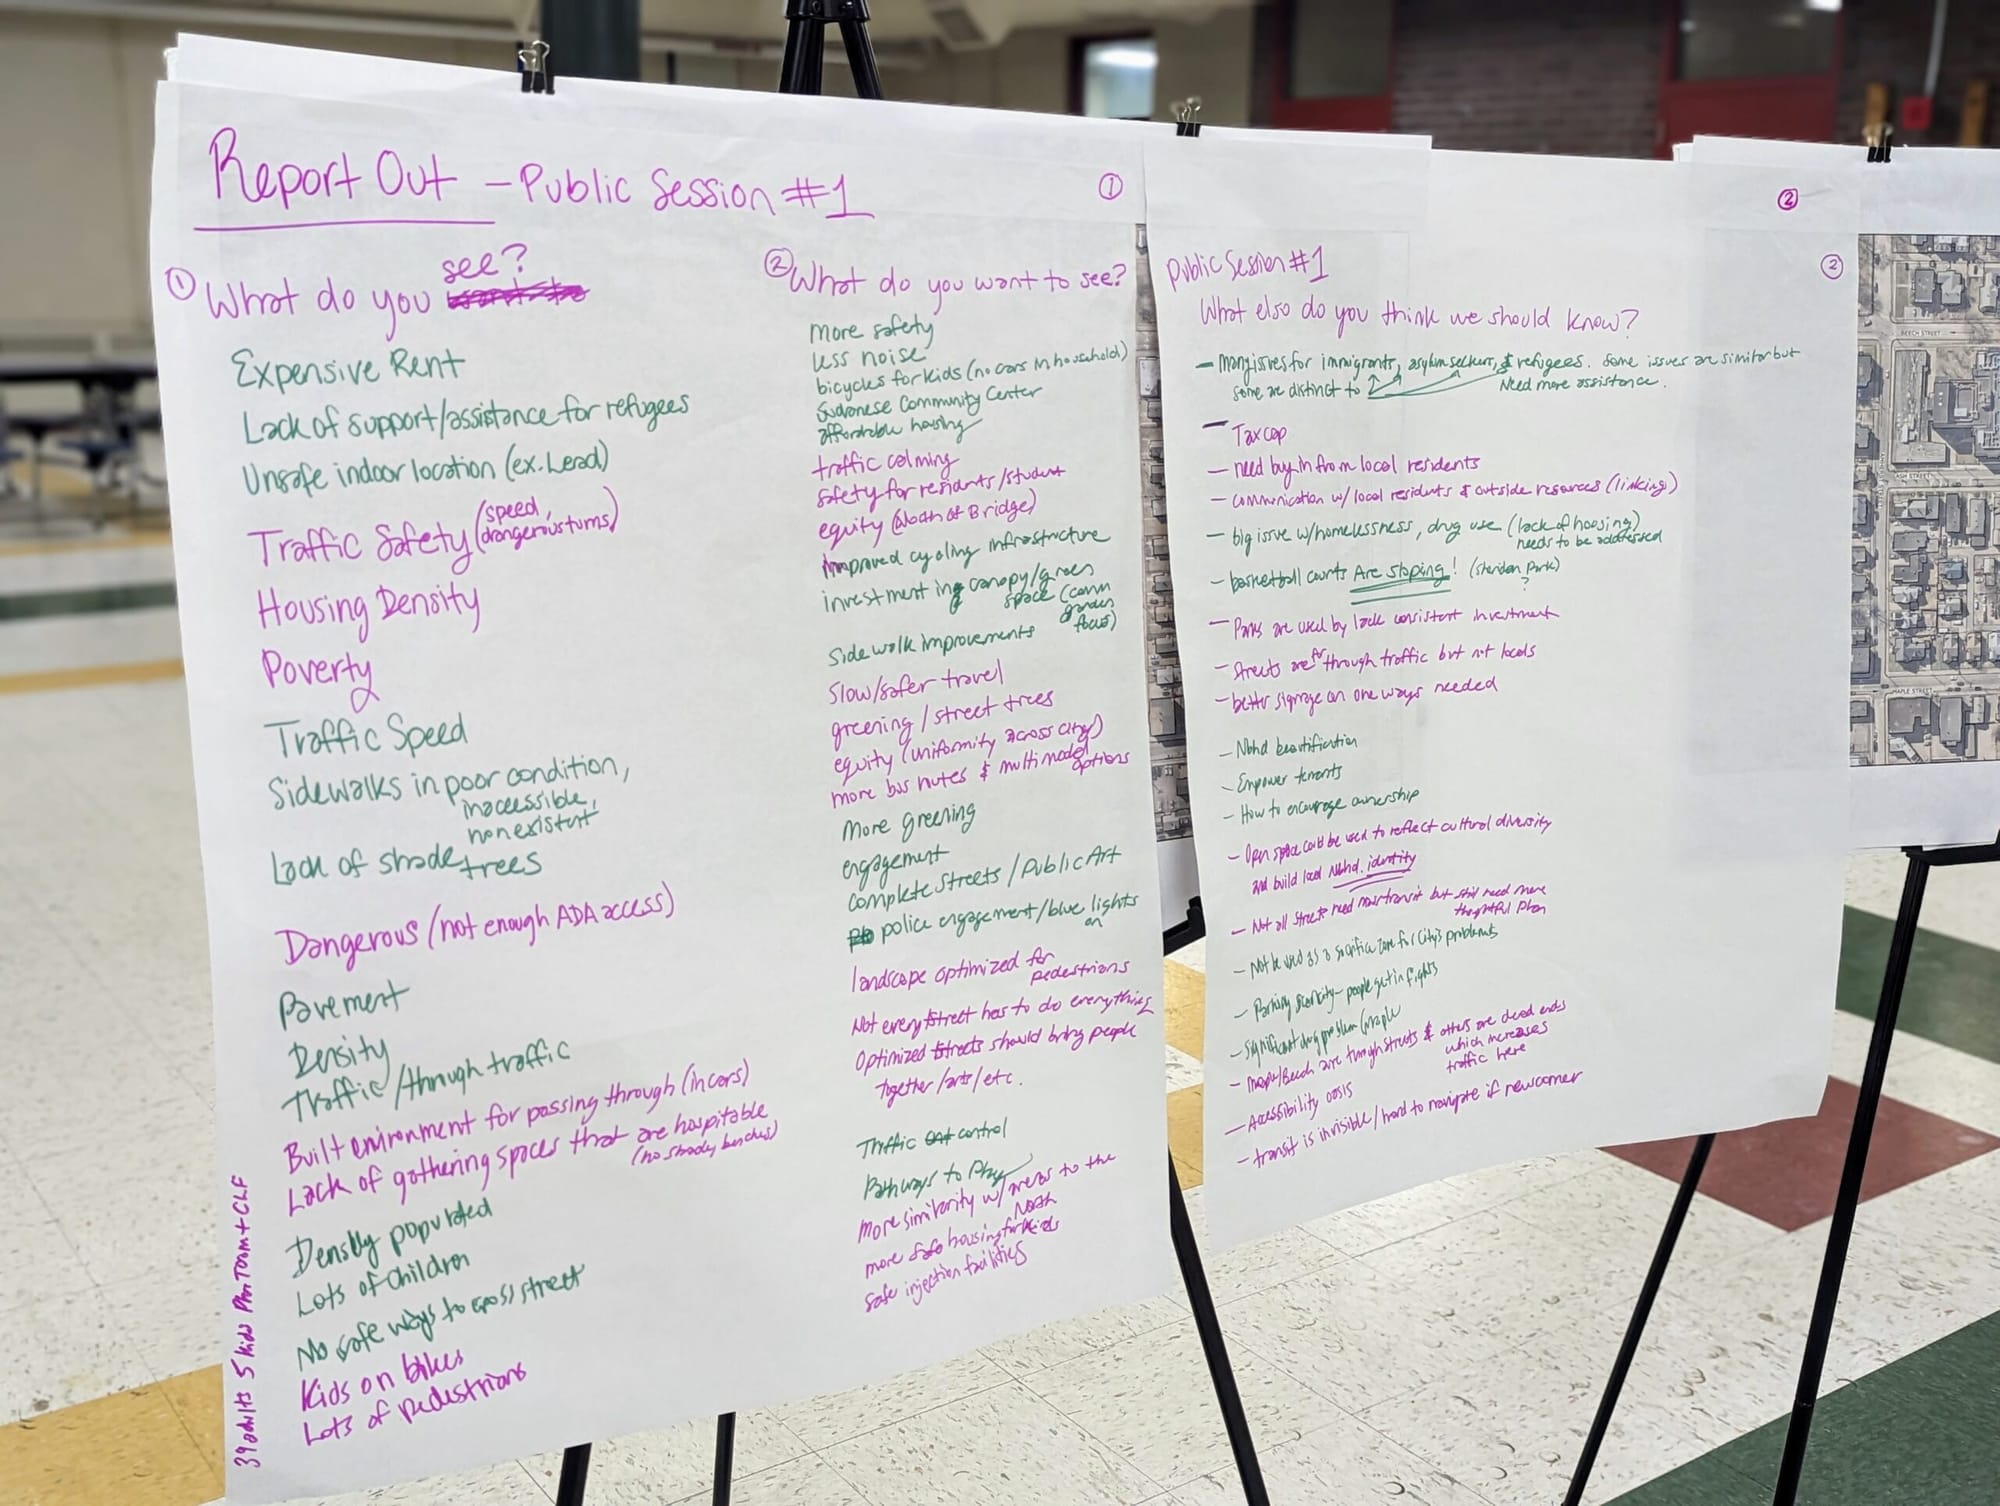 Report Out - Public Session #1
①
① What do you see?
Expensive Rent
Lack of support/assistance for refugees
Unsafe indoor location (ex. Lead)
Traffic Safety (speed, dangerous turns)
Housing Density
Poverty
Traffic Speed
Sidewalks in poor condition,
inaccessible,
nonexistent
Lack of shade trees
Dangerous (not enough ADA access)
Pavement
Density
Traffic/through traffic
Built environment for passing through (in cars)
Lack of gathering spaces that are hospitable
(no shady benches)
Densely populated
Lots of children
No safe ways to cross street
Kids on bikes
Lots of pedestrians
39 adults 5 kids + CLF
② What do you want to see?
More safety
less noise
bicycles for kids (no cars in household)
Sudanese Community Center
affordable housing
traffic calming
safety for residents/student
equity (North of Bridge)
improved cycling infrastructure
investment in canopy/green
space (comm
garden
focus)
Sidewalk improvements
Slow/safer travel
greening / street trees
equity (uniformity across city)
more bus routes & multi modal
options
More greening
engagement
Complete Streets / Public Art
police engagement/blue lights
on
landscape optimized for
pedestrians
Not every street has to do everything
Optimized streets should bring people
together/arts/etc.
Traffic control
Pathways to Play
More similarity w/ areas to the
North
more safe housing for kids
safe injection facilities
②
Public Session #1
②
What else do you think we should know?
- Many issues for immigrants, asylum seekers, & refugees. Some issues are similar but
some are distinct to
Need more assistance.
- Tax cap
- need buy in from local residents
- communication w/ local residents & outside resources (linking)
- big issue w/ homelessness, drug use (lack of housing)
needs to be addressed
- basketball courts Are sloping! (Sheridan Park)
?
- Parks are used by lack consistent investment
- Streets are for through traffic but not locals
- better signage on one ways needed
- Nbhd beautification
- Empower tenants
- How to encourage ownership
- Open space could be used to reflect cultural diversity
and build local Nbhd. identity
- Not all streets need more transit but still need more
thoughtful plan
- Not be used as a sacrifice zone for City's problems
- Parking scarcity - people get in fights
- Significant drug problem (Maple
- Maple/Beech are through streets & others are dead ends
which increases
traffic here
- Accessibility oasis
- transit is invisible / hard to navigate if newcomer
BEECH STREET
MAPLE STREET